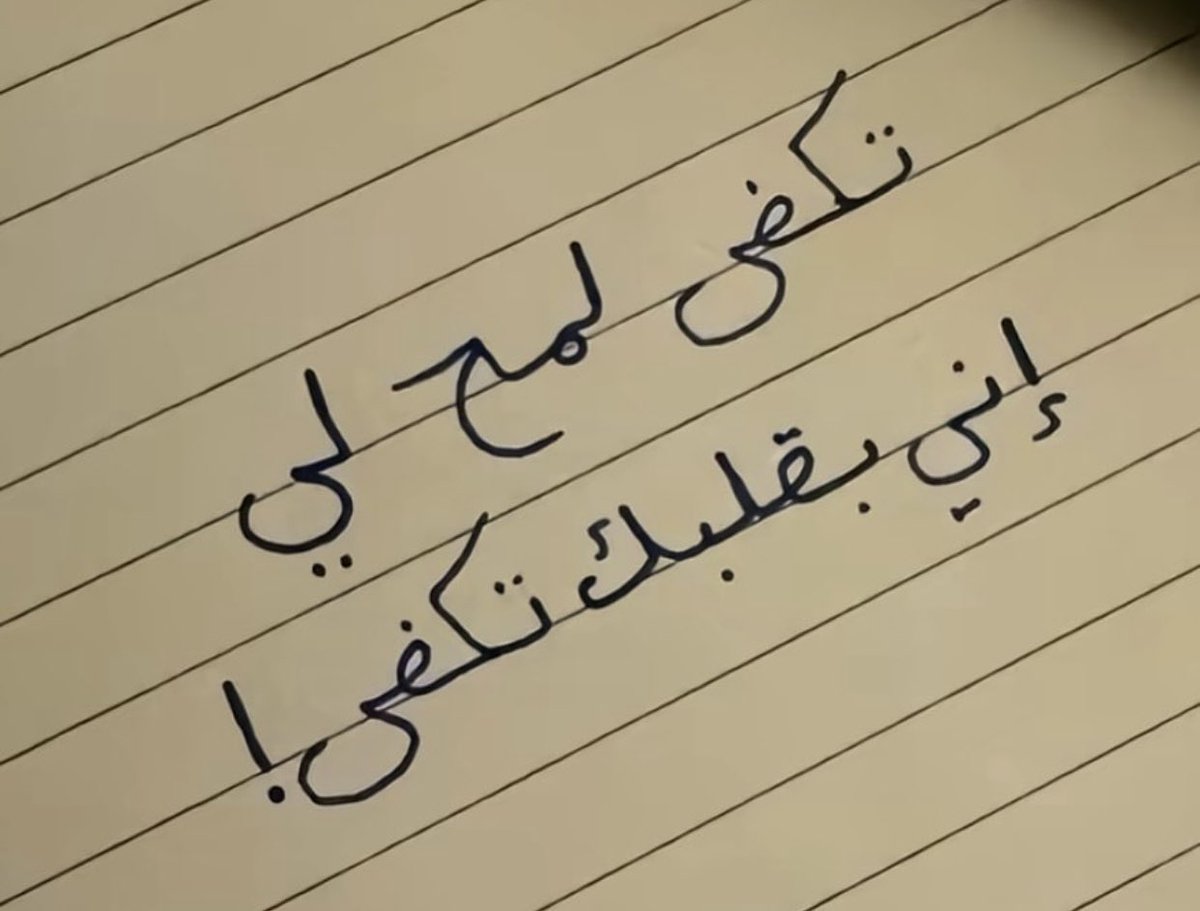 تكفى لمح لي
إني بقلبك تكفى!